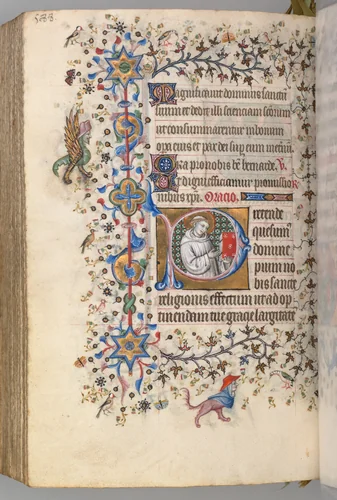 Magnificauit dominus sanctū
suum et dedit illi scientiam scōrum
ut consummarentur in domini
opera eius et pax dei sup eum
Ora pro nobis bē bernarde. V
ut digni efficiamur promissio
nibus xp̄i. Oracio.
Pretende
quesum
domine
pium no
bis sancte
religionis effectum ut ad op
tinendam tue gracie largitatē